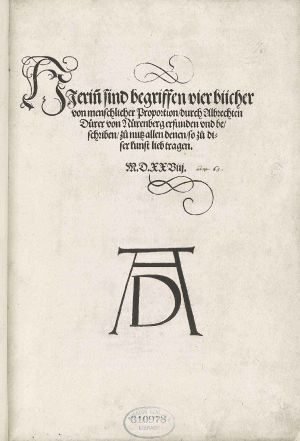 Hieriñ sind begriffen vier bücher
von menschlicher Proportion / durch Albrechten
Dürer von Nürenberg erfunden vnd be/
schriben / zu nutz allen denen / so zu di-
ser kunst lieb tragen.
M.D.XXViij.
AD
310978
LIBRARY